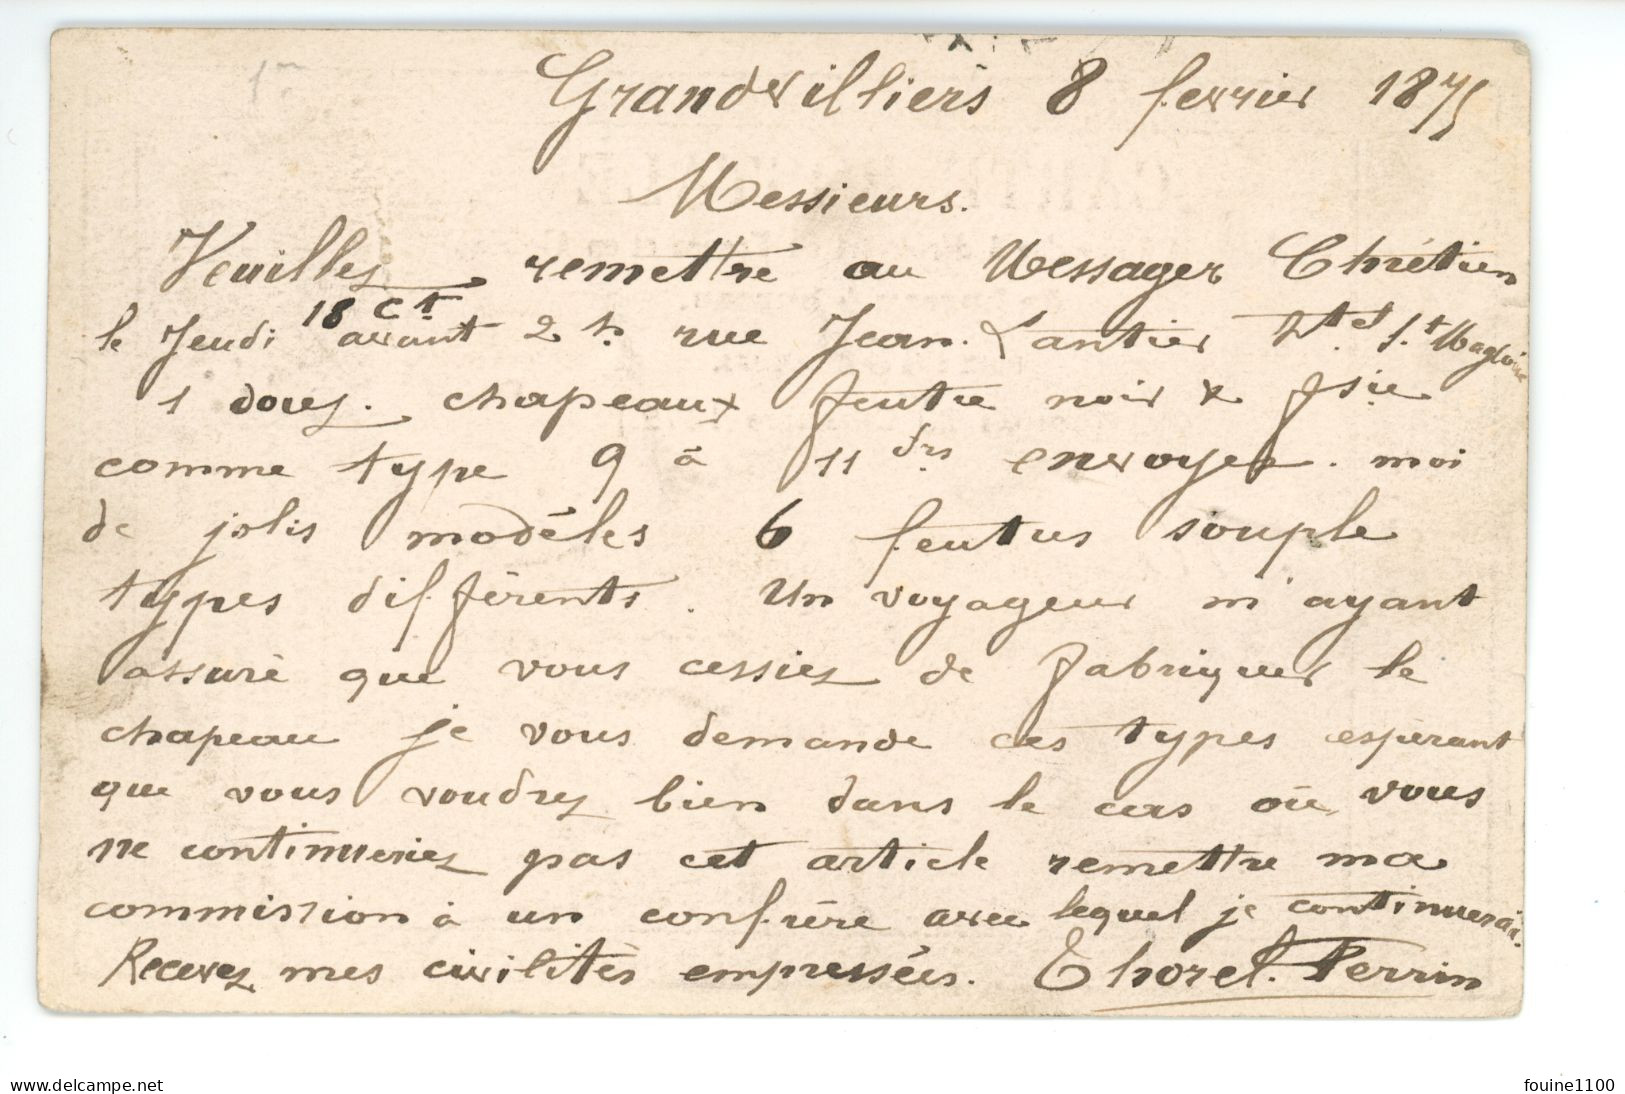 Grandvilliers 8 fevrier 1875
Messieurs.
Veuillez remettre au Messager Chrétien
18 Ct
le Jeudi avant 2 h. rue Jean. Lantier Htel St. Magloire
1 douz. chapeaux feutre noir &
comme type 9 à 11 drs envoyez. moi
de jolis modèles 6 feutres souple
types différents. Un voyageur m'ayant
assuré que vous cessiez de fabriquer le
chapeau je vous demande ces types espérant
que vous voudrez bien dans le cas où vous
ne continueriez pas cet article remettre ma
commission à un confrère avec lequel je continuerai.
Recevez mes civilités empressées. Thorel. Perrin
delcampe.net
fouine1100